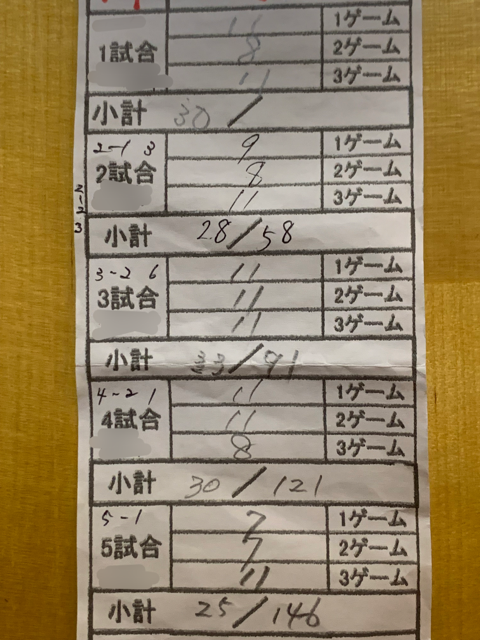 11 1ゲーム
1試合 8 2ゲーム
11 3ゲーム
小計 30 /
2-1 3 9 1ゲーム
2試合 8 2ゲーム
11 3ゲーム
2-2 3
小計 28/58
3-2 6 11 1ゲーム
3試合 11 2ゲーム
11 3ゲーム
小計 33/91
4-2 1 11 1ゲーム
4試合 11 2ゲーム
8 3ゲーム
小計 30/121
5-1 7 1ゲーム
5試合 7 2ゲーム
11 3ゲーム
小計 25/146